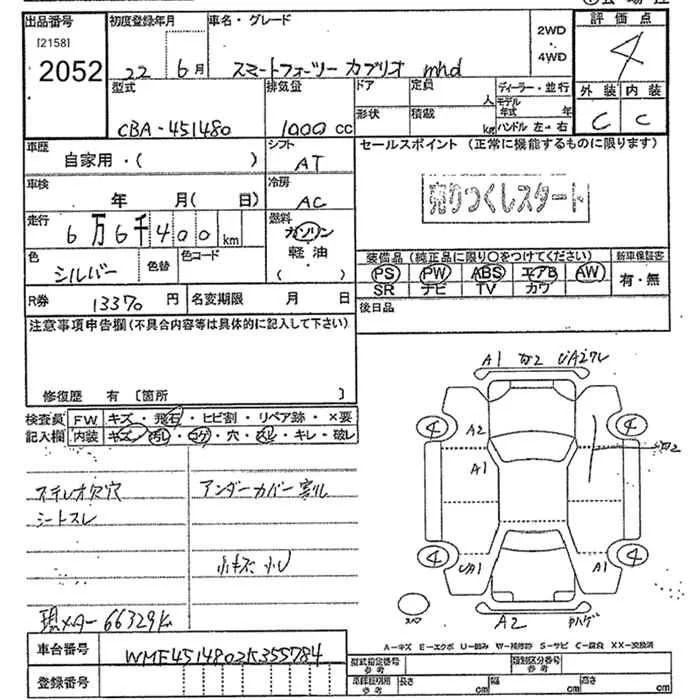 出品番号 初度登録年月 車名・グレード 評価点
[2158]
2052
22 6月 スマートフォーツー カブリオ mhd 2WD・4WD 4
型式 排気量 ドア 定員 人 ディーラー・並行 外装 内装
CBA-451480 1000 cc 形状 積載 kg モデル年式 年 ハンドル 左・右 C C
車歴 シフト セールスポイント (正常に機能するものに限ります)
自家用・( ) AT
車検 冷房 売りつくしスタート
年 月( 日) AC
走行 燃料
6万6千400km ガソリン
色 色替 色コード 軽油 装備品 (純正品に限り○をつけてください) 新車保証書
シルバー ( ) PS PW ABS エアB AW 有・無
SR ナビ TV カワ
R券 13370 円 名変期限 月 日 後日品
注意事項申告欄(不具合内容等は具体的に記入して下さい)
修復歴 有 [箇所 ]
検査員 FW キズ・飛石・ヒビ割・リペア跡・×要
記入欄 内装 キズ・汚レ・コゲ・穴・スレ・キレ・破レ
ステレオ欠穴 アンダーカバー割れ
シートスレ
小キズ 小U
現メーター 66329k
A1 UA2ワレ
4 A2 4
A1
4 UA1 A1 4
A2
A-キズ E-エクボ U-凹み W-補修跡 S-サビ C-腐食 XX-交換済
車台番号 WMF4514802K355784
登録番号
型式指定番号 参考 類別区分番号 参考
参考 長さ cm 幅 cm 高さ cm